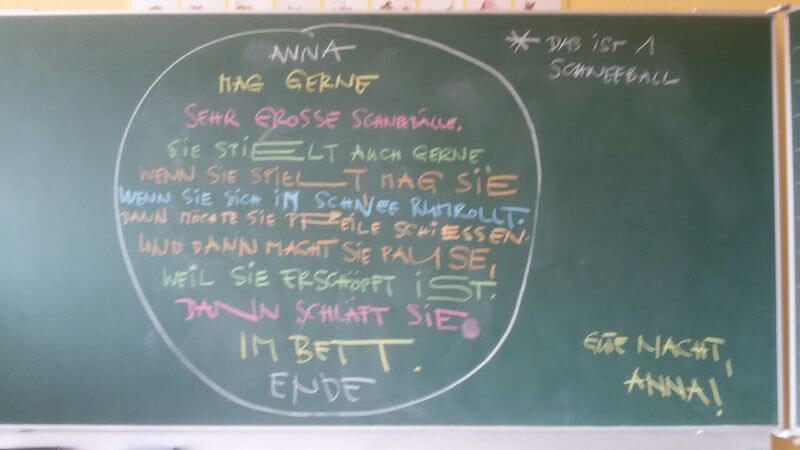 ANNA
MAG GERNE
SEHR GROSSE SCHNEEBÄLLE.
SIE SPIELT AUCH GERNE
WENN SIE SPIELT MAG SIE
WENN SIE SICH IM SCHNEE RUMROLLT.
DANN MÖCHTE SIE PFEILE SCHIESSEN.
UND DANN MACHT SIE PAUSE,
WEIL SIE ERSCHÖPFT IST.
DANN SCHLÄFT SIE
IM BETT.
ENDE
* DAS IST 1
SCHNEEBALL
GUTE NACHT,
ANNA!